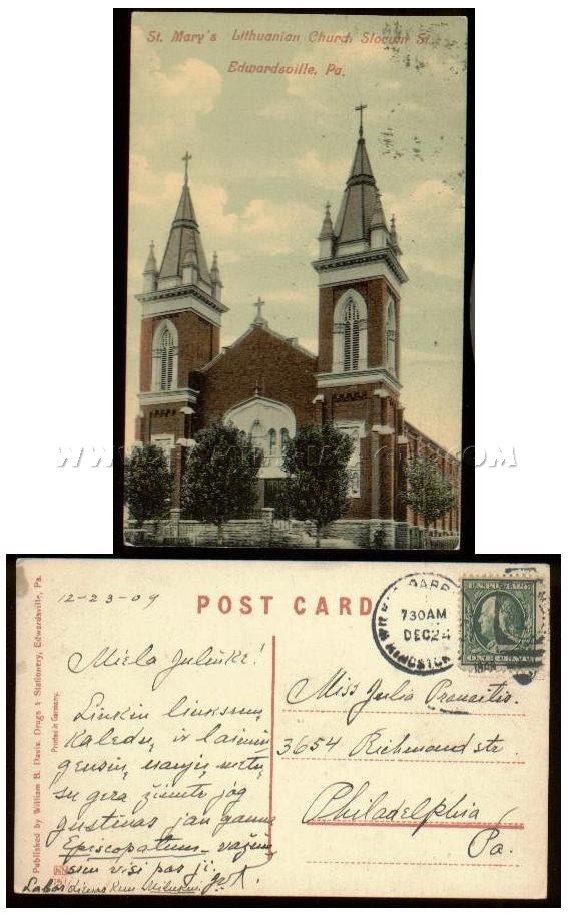 St. Mary's Lithuanian Church Slocum St.
Edwardsville, Pa.
12-23-09
POST CARD
730AM
DEC 24
Published by William B. Davis, Drugs & Stationery, Edwardsville, Pa.
Printed in Germany.
Miela Juliuke!
Linkiu linksmų
Kaledų, ir laimin
gensių naujų metų
su gera žinute jog
Justinas jau gauna
Episcopatum važiu
sim visi pas jį.
Miss Julia
3654 Richmond str.
Philadelphia
Pa.